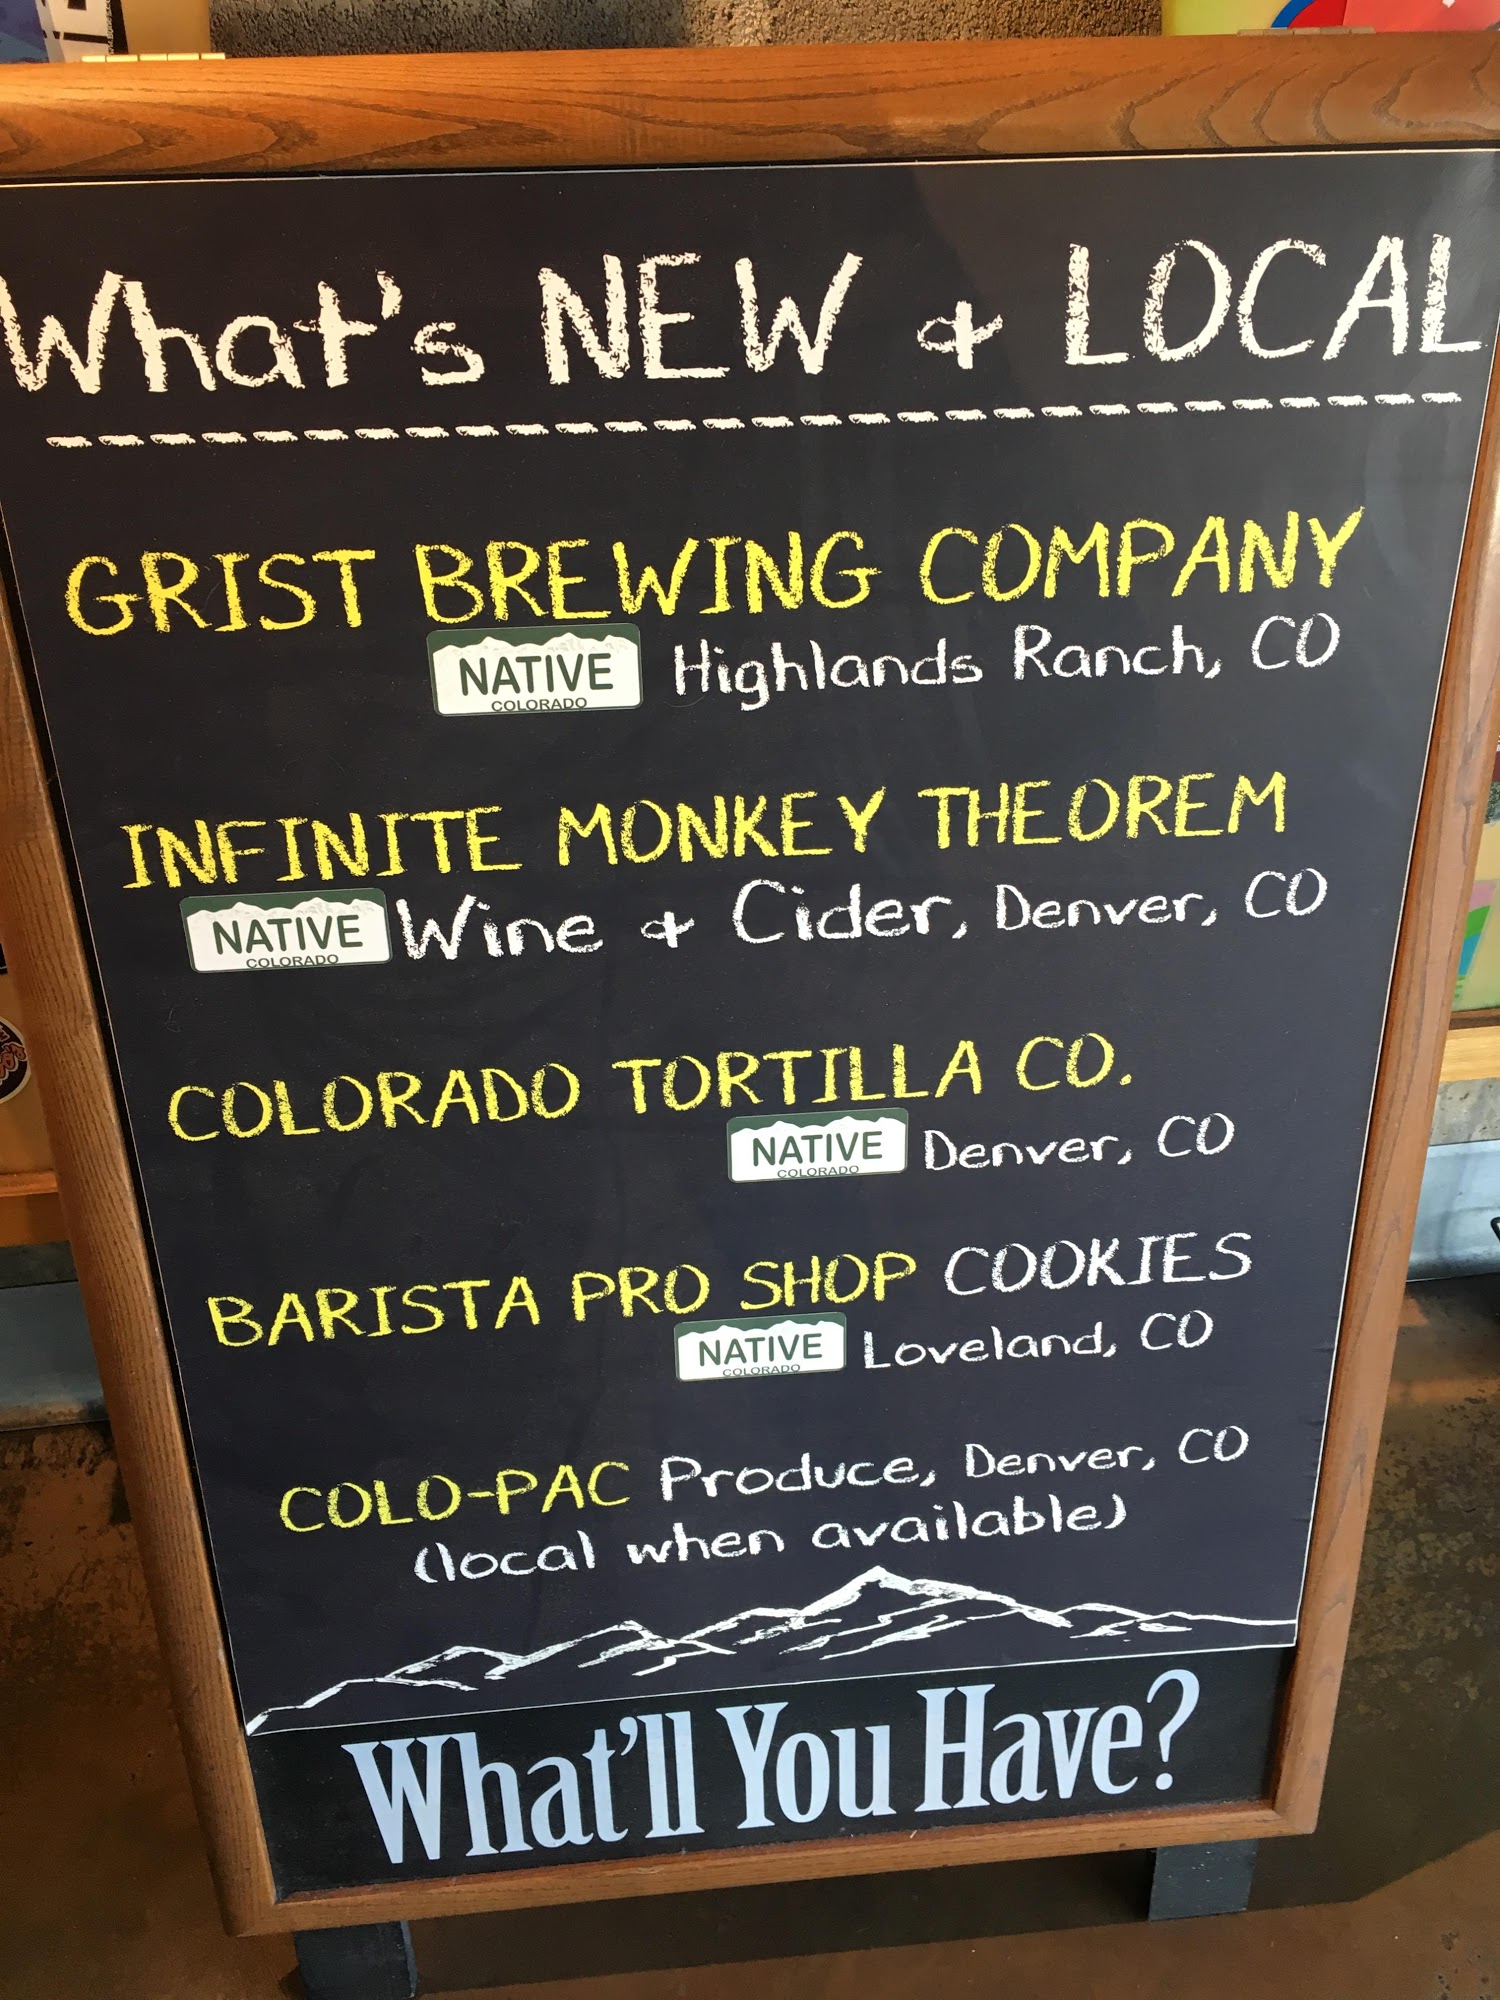 What's NEW & LOCAL
GRIST BREWING COMPANY
NATIVE
COLORADO
Highlands Ranch, CO
INFINITE MONKEY THEOREM
NATIVE
COLORADO
Wine & Cider, Denver, CO
COLORADO TORTILLA CO.
NATIVE
COLORADO
Denver, CO
BARISTA PRO SHOP COOKIES
NATIVE
COLORADO
Loveland, CO
COLO-PAC Produce, Denver, CO
(local when available)
What'll You Have?